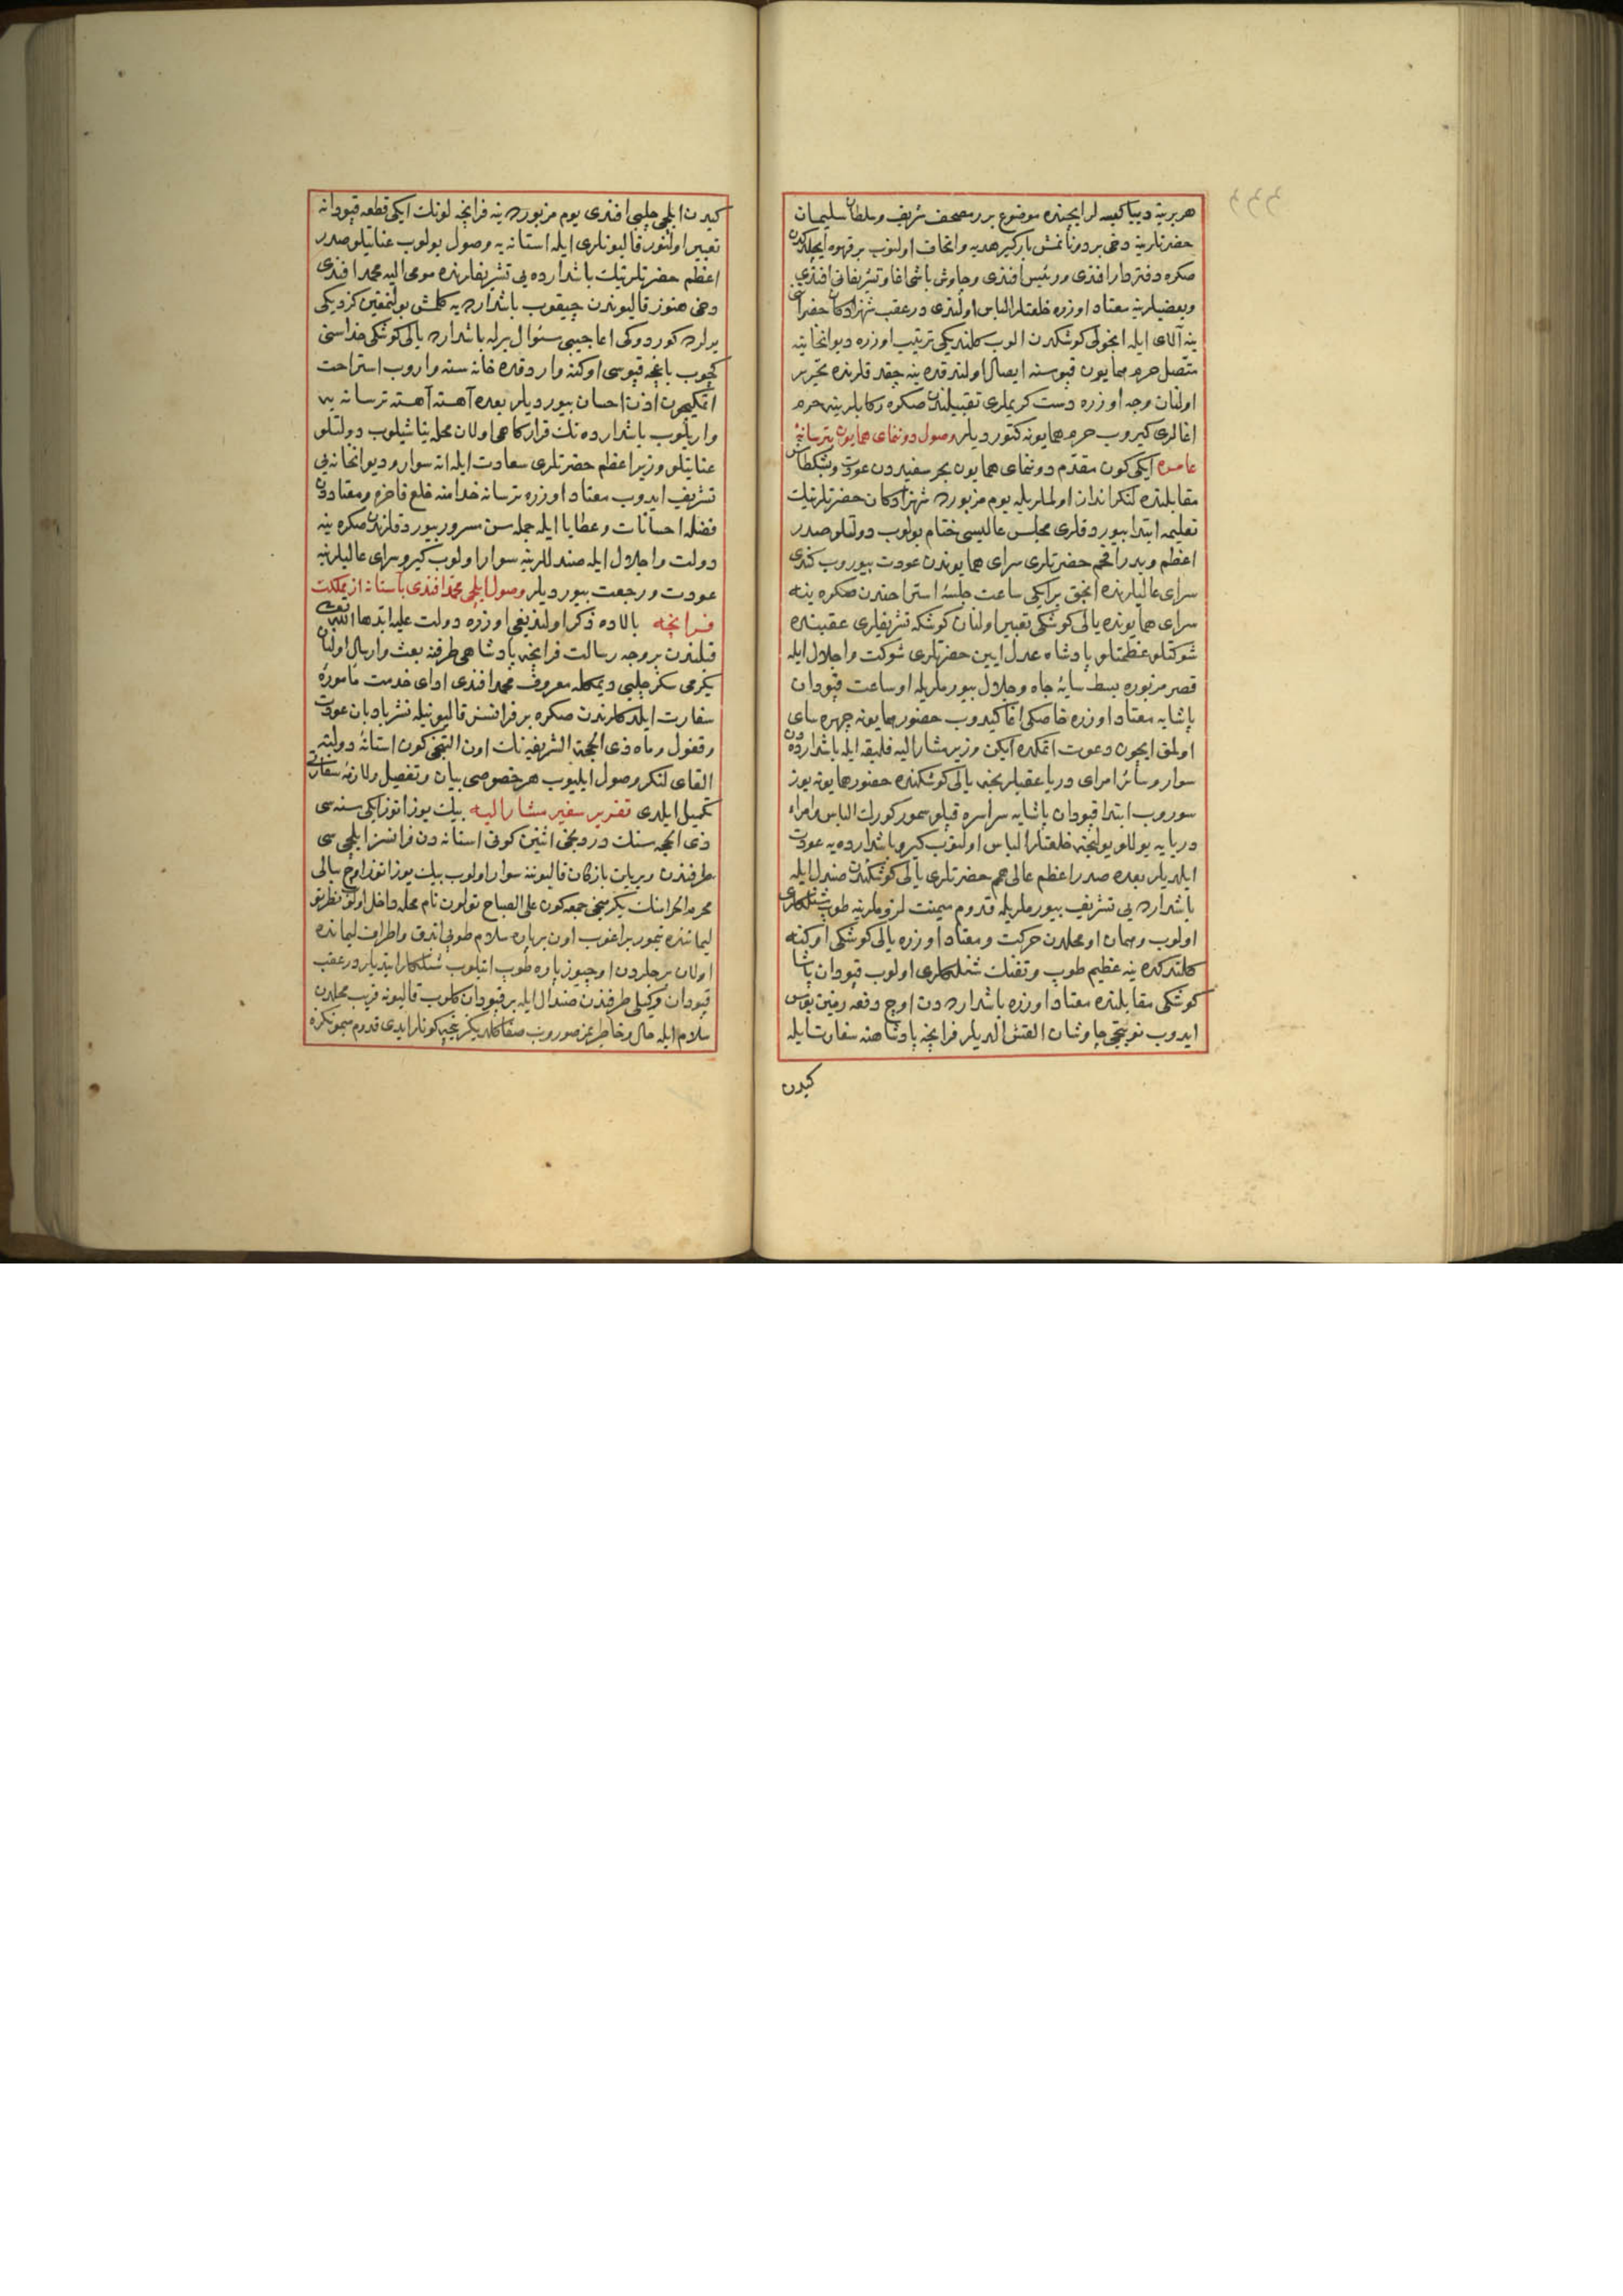 هربرینه دیبا کیسه لر ایچنده موضوع برر مصحف شریف و سلطان سلیمان
حضرتلرینه دخی بر دونانمش بارکیر هدیه و اتحاف اولنوب بر قهوه ایچلدکدن
صکره دفتردار افندی و رئیس افندی و چاوش باشی اغا و تشریفاتی افندی
و بعضیلرینه معتاد اوزره خلعتلر الباس اولندی در عقب شهزادکان حضراتی
ینه آلای ایله انجولی کوشکدن الوب کلندیکی ترتیب اوزره دیوانخانیه
متصل حرم همایون قپوسنه ایصال اولندقده ینه چقدقلرنده تحریر
اولنان وجه اوزره دست کریملری تقبیلندن صکره رکابلرینه حرم
اغالری کیروب حرم همایونه کتوردیلر وصول دونمای همایون بترسانهٔ
عامره ایکی کون مقدم دونمای همایون بحر سفیددن عودت و بشکطاش
مقابلنده لنکرانداز اولملریله یوم مزبورده شهزادکان حضرتلرینک
تعلیمه ابتدا بیوردقلری مجلس عالیسی ختام بولوب دولتلو صدر
اعظم و صدر افخم حضرتلری سرای همایوندن عودت بیوروب کندی
سرای عالیلرنده انجق بر ایکی ساعت جلسهٔ استراحتدن صکره ینه
سرای همایونده یالی کوشکی تعبیر اولنان کوشکه تشریفلری عقیبنده
شوکتلو عظمتلو پادشاه عدل ایین حضرتلری شوکت و اجلال ایله
قصر مزبوره بسط سایهٔ جاه و جلال بیورملریله او ساعت قپودان
پاشایه معتاد اوزره خاصکی اغا کیدوب حضور همایونه چهره سای
اولمق ایچون دعوت اتمکده ایکن وزیر مشار الیه فلیقه ایله باشدارده دن
سوار و سائر امرای دریا عقبلرنجه یالی کوشکنده حضور همایونه یوز
سوروب ابتدا قپودان پاشایه سراسره قپلو سمور کورک الباس و امراء
دریایه یوللو یولنجه خلعتلر الباس اولنوب کیرو باشدارده یه عودت
ایلدیلر بعده صدر اعظم عالی همم حضرتلری یالی کوشکندن صندل ایله
باشدارده یی تشریف بیورملریله قدوم میمنت لزوملرینه طوپ شنلکلری
اولوب و همان او محلدن حرکت و معتاد اوزره یالی کوشکی اوکنه
کلندکده ینه عظیم طوپ و تفنک شنلکلری اولوب قپودان پاشا
کوشکی مقابلنده معتاد اوزره باشدارده دن اوچ دفعه زمین بوس
ایدوب نوبتچی چاوشان القش الدیلر فرانچه پادشاهنه سفارت ایله
کیدن
کیدن ایلچی چلبی افندی یوم مزبورده ینه فرانچه لونک ایکی قطعه قپودانه
تعبیر اولنور قالیونلری ایله استانه یه وصول بولوب عنایتلو صدر
اعظم حضرتلرینک باشدارده یی تشریفلرنده مومی الیه محمد افندی
دخی هنوز قالیوندن چیقوب باشدارده یه کلمش بولنمغین کزدیکی
یرلرده کوردوکی اعاجیبی سئوال برله باشدارده یالی کوشکی حذاسنی
کچوب باغچه قپوسی اوکنه واردقده خانه سنه واروب استراحت
اتمکیچون اذن احسان بیوردیلر بعده آهسته آهسته ترسانه یه
واریلوب باشدارده نک قرارکاهی اولان محله یناشیلوب دولتلو
عنایتلو وزیر اعظم حضرتلری سعادت ایله اته سوار و دیوانخانه یی
تشریف ایدوب معتاد اوزره ترسانه خدامنه خلع فاخره و معتاددن
فضله احسانات و عطایا ایله جمله سن مسرور بیوردقلرندن صکره ینه
دولت و اجلال ایله صندللرینه سوار اولوب کیرو سرای عالیلرینه
عودت و رجعت بیوردیلر وصول ایلچی محمد افندی باستانه از مملکت
فرانچه بالاده ذکر اولندیغی اوزره دولت علیه ابدها الله تعالی
قبلندن بر وجه رسالت فرانچه پادشاهی طرفنه بعث و ارسال اولنان
یکرمی سکز چلبی دیمکله معروف محمد افندی ادای خدمت مأمورهٔ
سفارت ایلدکلرندن صکره بر فرانسز قالیونیله نشر بادبان عودت
و قفول و ماه ذی الحجه الشریفه نک اون التنجی کون استانهٔ دولته
القای لنکر وصول ایلیوب هر خصوصی بیان و تفصیل و لازمهٔ سفارتی
تکمیل ایلدی تقریر سفیر مشار الیه بیک یوز اتوز ایکی سنه سی
ذی الحجه سنک دردنجی اثنین کونی استانه دن فرانسز ایلچی سی
طرفندن ویریلن بازرکان قالیوننه سوار اولوب بیک یوز اتوز اوچ سالی
محرم الحرامنک یکرمنجی جمعه کون علی الصباح تولون نام محله داخل اولوب
لیماننده تیمور براغوب اون بر پاره سلام طوپی اتدق و اطراف لیمانده
اولان برجلردن اوچیوز پاره طوپ اتیلوب شنلکلر ایتدیلر در عقب
قپودان وکیلی طرفندن صندال ایله بر قپودان کلوب قالیونه قریب محلدن
سلام ایله حال و خاطریمز صوروب صفا کلدیکز نیجه کونلر ایدی قدوم